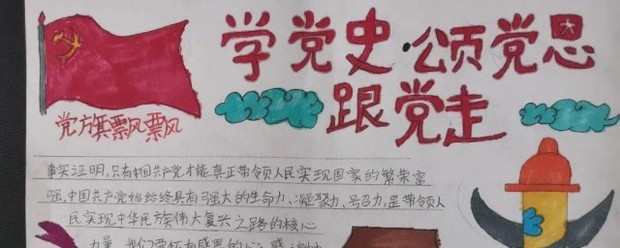 学党史·颂党恩
跟党走
党旗飘飘
事实证明,只有中国共产党才能真正带领人民实现国家的繁荣富
强,中国共产党始终具有强大的生命力、凝聚力、号召力,是带领人
民实现中华民族伟大复兴之路的核心
力量,我们要怀有感恩的心